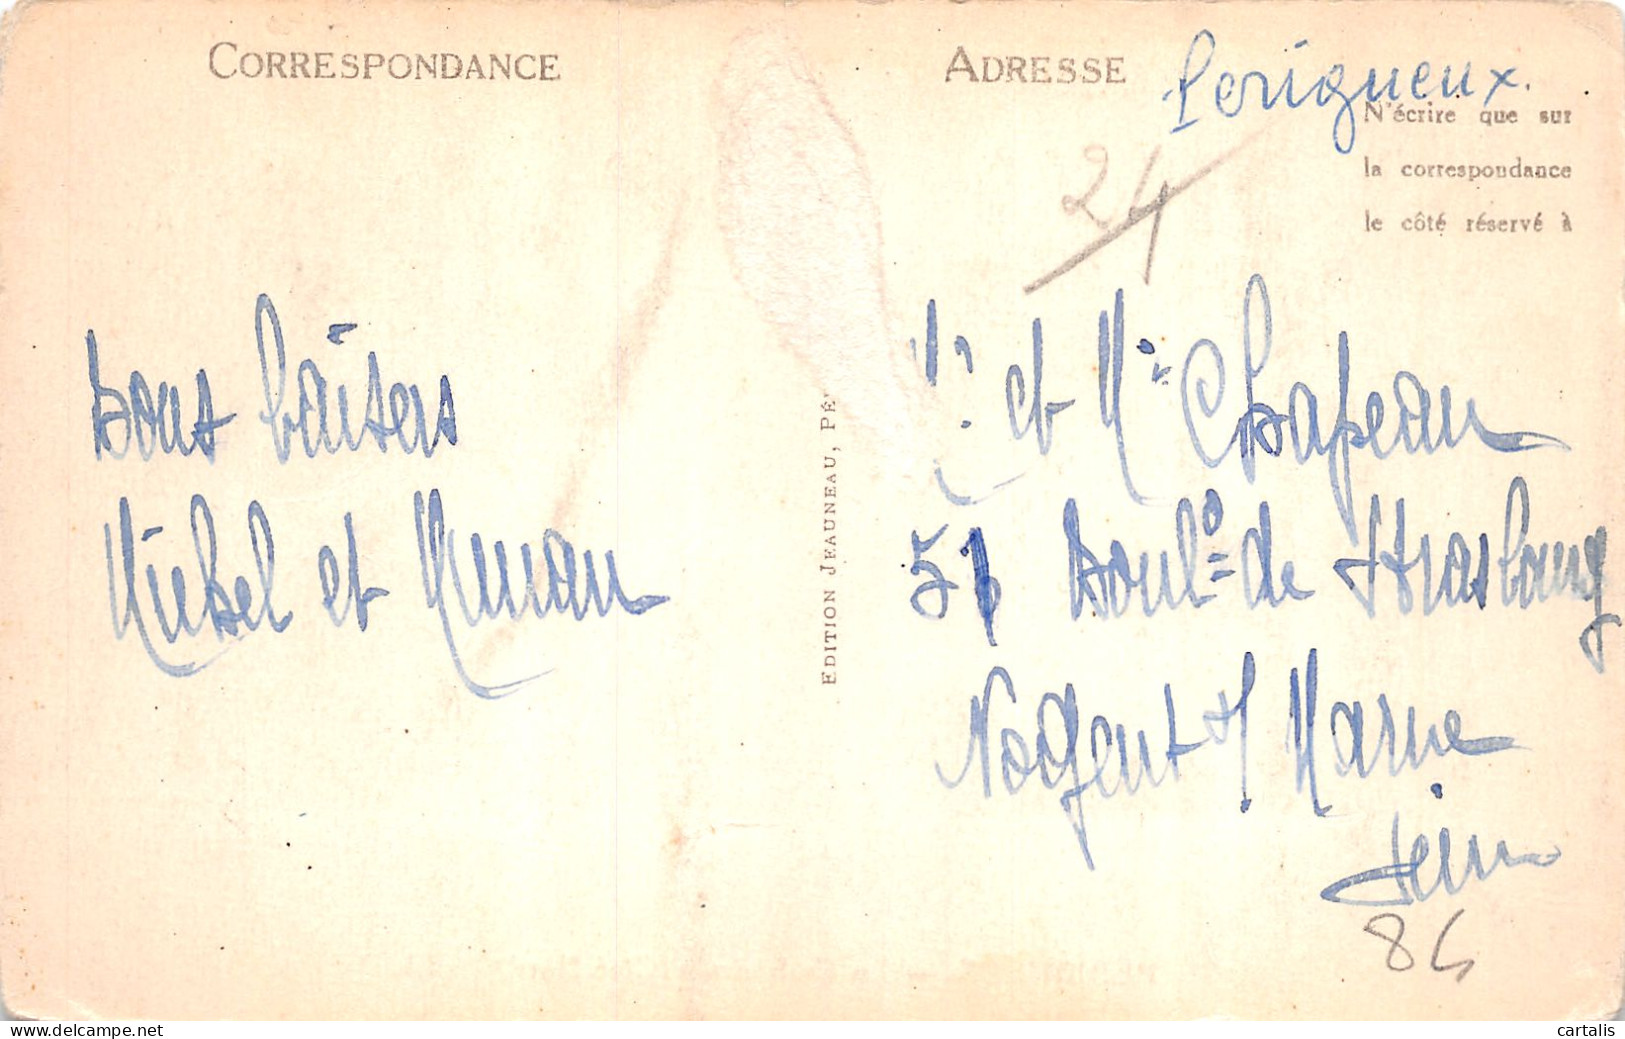 CORRESPONDANCE
ADRESSE
Perigueux.
N'écrire que sur
la correspondance
le côté réservé à
24
Bons baisers
Michel et Manan
EDITION JEAUNEAU, PÉ
Mr et Me Chapeau
51 Bould de Strasbourg
Nogent s/ Marne
Seine
84
cartalis